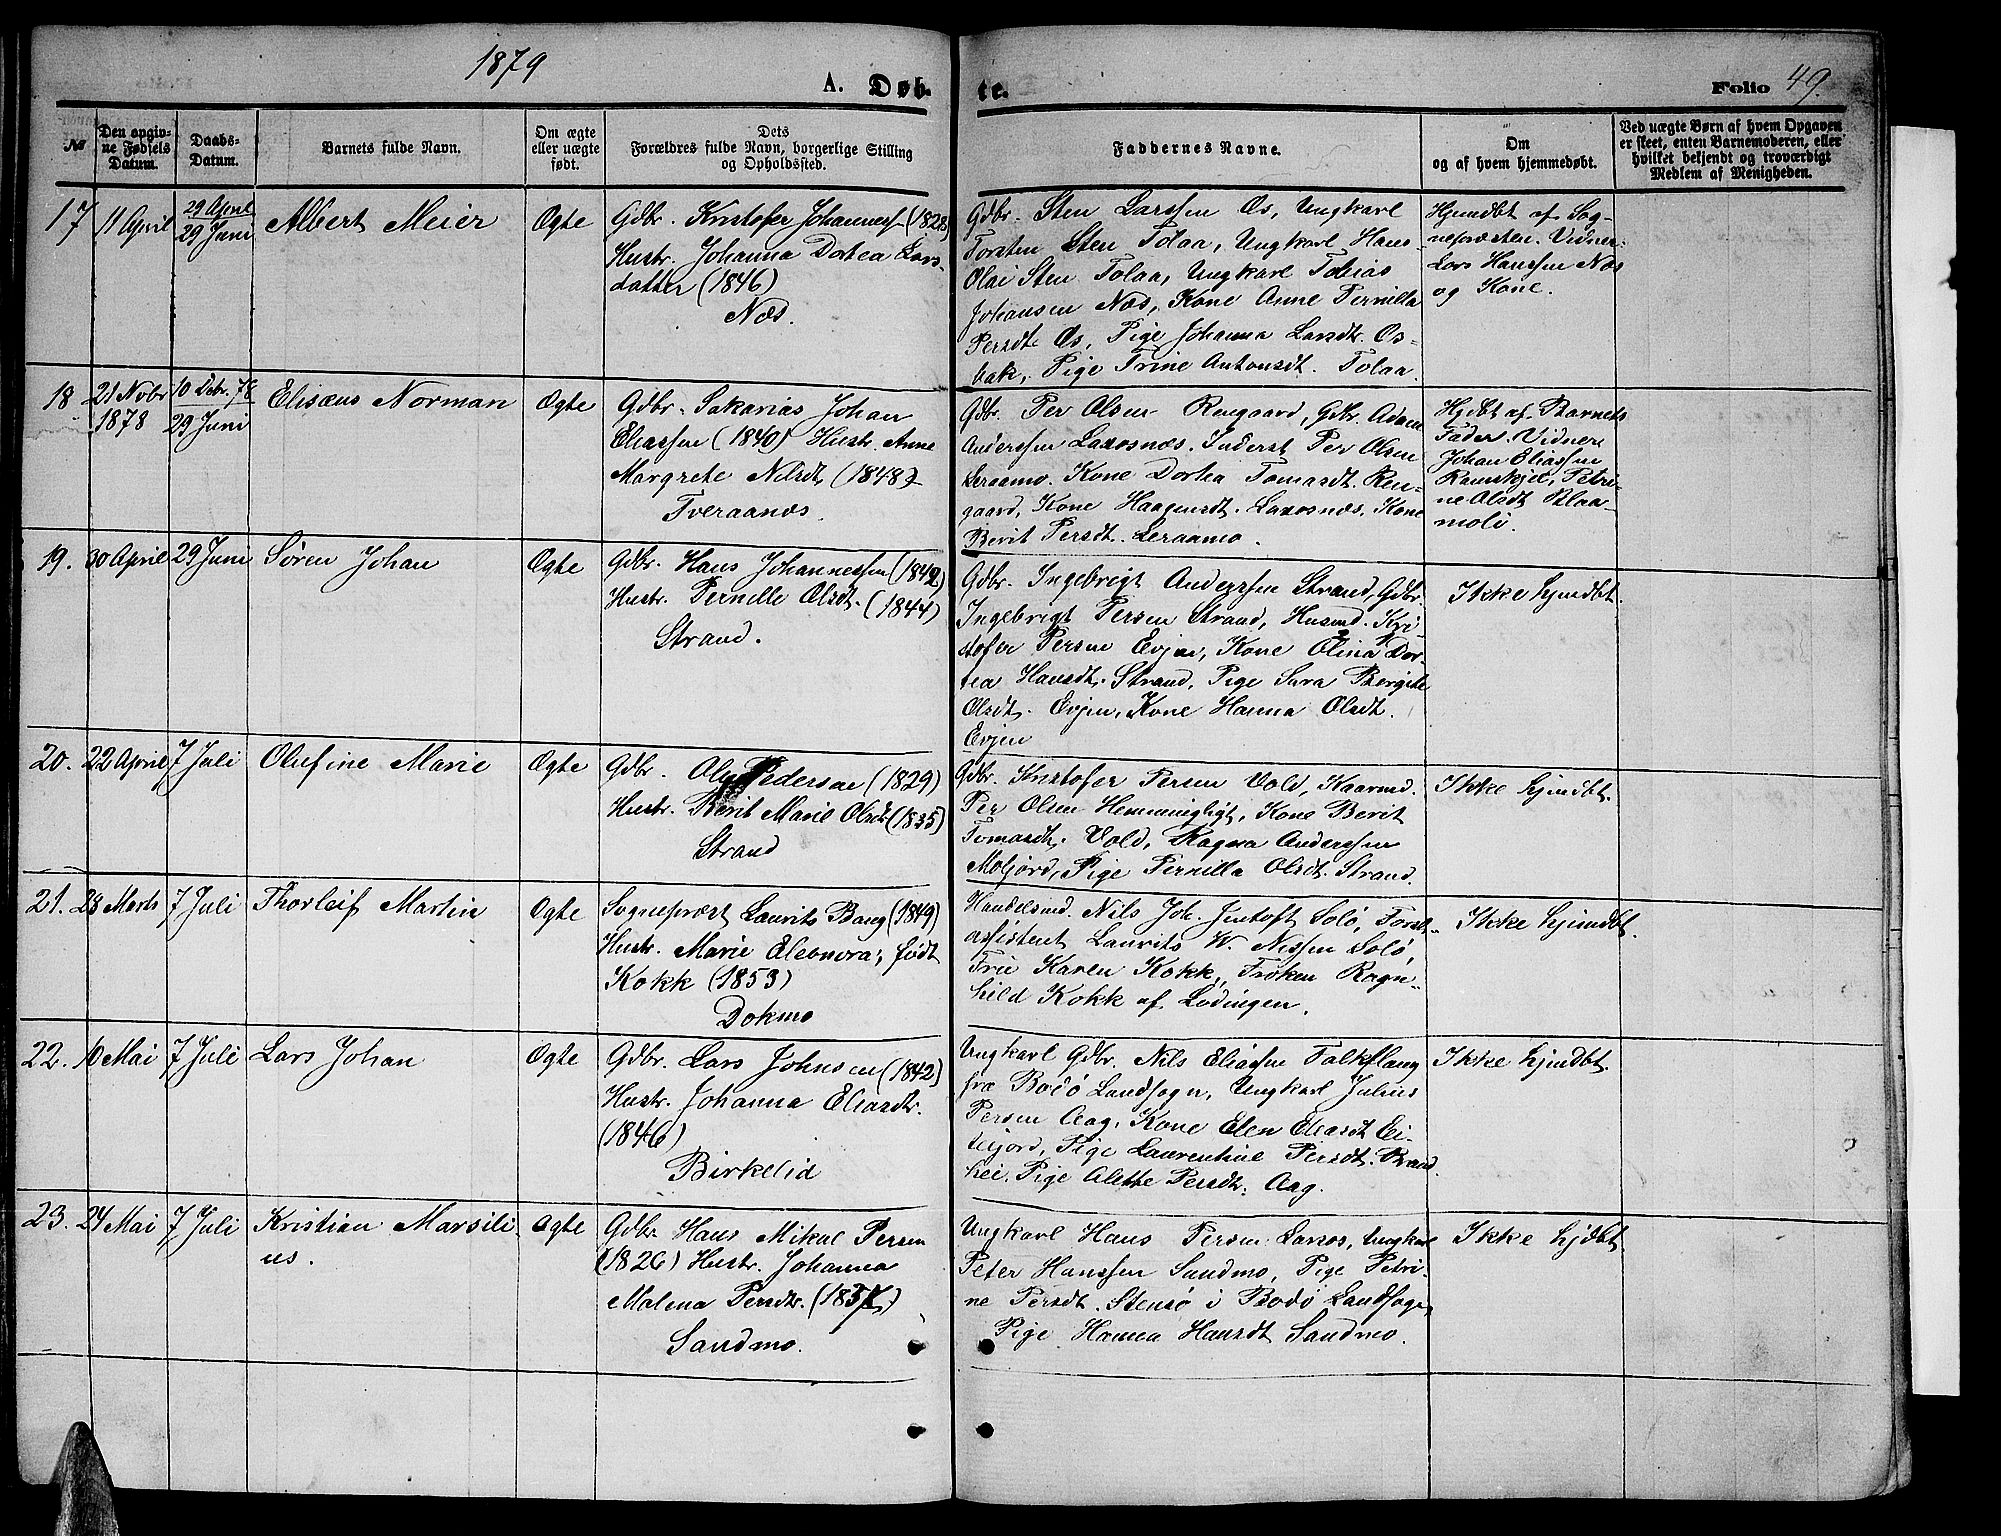 1879
A. Døb-
te.
Folio 49.
№
Den opgiv-
ne Fødsels
Datum.
Daabs-
Datum.
Barnets fulde Navn.
Om ægte
eller uægte
født.
Dets
Forældres fulde Navn, borgerlige Stilling
og Opholdssted.
Faddernes Navne.
Om
og af hvem hjemmedøbt.
Ved uægte Børn af hvem Opgaven
er skeet, enten Barnemoderen, eller
hvilket bekjendt og troværdigt
Medlem af Menigheden.
17
11 April
29 April
29 Juni
Albert Meier
Ægte
Gdbr. Kristofer Johanness. (1828)
Hustr. Johanna Dortea Lars-
datter (1846)
Næs.
Gdbr. Sten Larssen Øs, Ungkarl
Torsten Sten Tolaa, Ungkarl Hans
Olai Sten Tolaa, Ungkarl Tobias
Johansen Næs, Kone Anne Pernilla
Persdt Øs, Pige Johanna Larsdt. Os-
bak, Pige Trine Antonsdt. Tolaa.
Hjemdbt af Sog-
nepræsten. Vidner:
Lars Hanssen Næs
og Kone.
18
21 Novbr
1878
10 Debr. 78
29 Juni
Elisæus Norman
Ægte
Gdbr. Sakarias Johan
Eliassen (1840) Hustr. Anne
Margrete Nilsdt. (1848)
Tveraanæs.
Gdbr. Per Olsen Rengaard, Gdbr. Adam
Anderssen Laxosnæs. Inderst Per Olsen
Leraamo. Kone Dortea Tomasdt. Ren-
gaard, Kone Haagensdt. Laxosnæs, Kone
Berit Persdt. Leraamo.
Hjdbt af Barnets
Fader. Vidnere
Johan Eliassen
Ramskjel, Petri-
ne Olsdt Blaa-
moli.
19.
30 April
29 Juni
Søren Johan
Ægte
Gdbr. Hans Johannessen (1842)
Hustr. Pernille Olsdt. (1844)
Strand.
Gdbr. Ingebrigt Anderssen Strand, Gdbr.
Ingebrigt Persen Strand, Husmd. Kri-
stofer Persen Evjen, Kone Olina Dor-
tea Hansdt. Strand, Pige Sara Bergite
Olsdt. Evjen, Kone Hanna Olsdt.
Evjen
Ikke hjemdbt.
20.
22 April
7 Juli
Olufine Marie
Ægte
Gdbr. Ole Pedersen (1829)
Hustr. Berit Marie Olsdt (1835)
Strand
Gdbr. Kristofer Persen Vold, Kaarmd.
Per Olsen Hemmingligt, Kone Berit
Tomasdt. Vold, Ragna Anderssen
Moljord, Pige Pernilla Olsdt. Strand.
Ikke hjemdbt.
21.
23 Marts
7 Juli
Thorleif Martin
Ægte
Sognepræst Laurits Bang (1849)
Hustr. Marie Eleonora, født
Kokk (1853)
Dokmo
Handelsmd. Nils Joh. Jentoft Solø, Forst-
assistent Laurits W. Nissen Solø,
Frue Karen Kokk, Frøken Ragn-
hild Kokk af Lødingen.
Ikke hjemdbt.
22.
10 Mai
7 Juli
Lars Johan
Ægte
Gdbr. Lars Johnsen (1842)
Hustr. Johanna Eliasdtr.
(1846)
Birkelid
Ungkarl Gdbr. Nils Eliassen Falkflaug
fra Bodø Landsogn, Ungkarl Julius
Persen Aag, Kone Elen Eliasdt Ei-
tefjord, Pige Laurentine Persdt. Brand-
hei, Pige Alette Persdt. Aag.
Ikke hjemdbt.
23.
24 Mai
7 Juli
Kristian Marsili-
us.
Ægte
Gdbr. Hans Mikal Persen
(1826) Hustr. Johanna
Malena Persdtr. (1837)
Sandmo.
Ungkarl Hans Persen Laxos, Ungkarl
Peter Hanssen Sandmo, Pige Petri-
ne Persdt. Stensø i Bodø Landsogn,
Pige Hanna Hansdt Sandmo.
Ikke hjdbt.